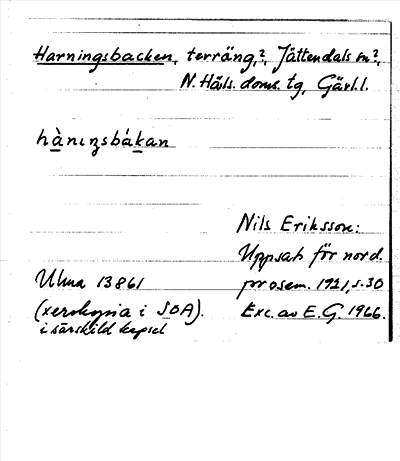 Harningsbacken, terräng?, Jättendals sn?,
N. Häls. doms. tg, Gävl.l.
hànıŋsbákan
Nils Eriksson:
Uppsats för nord.
Ulma 13861
prosem. 1921, s. 30
(xerokopia i SOA).
Exc. av E.G. 1966.
i särskild kapsel